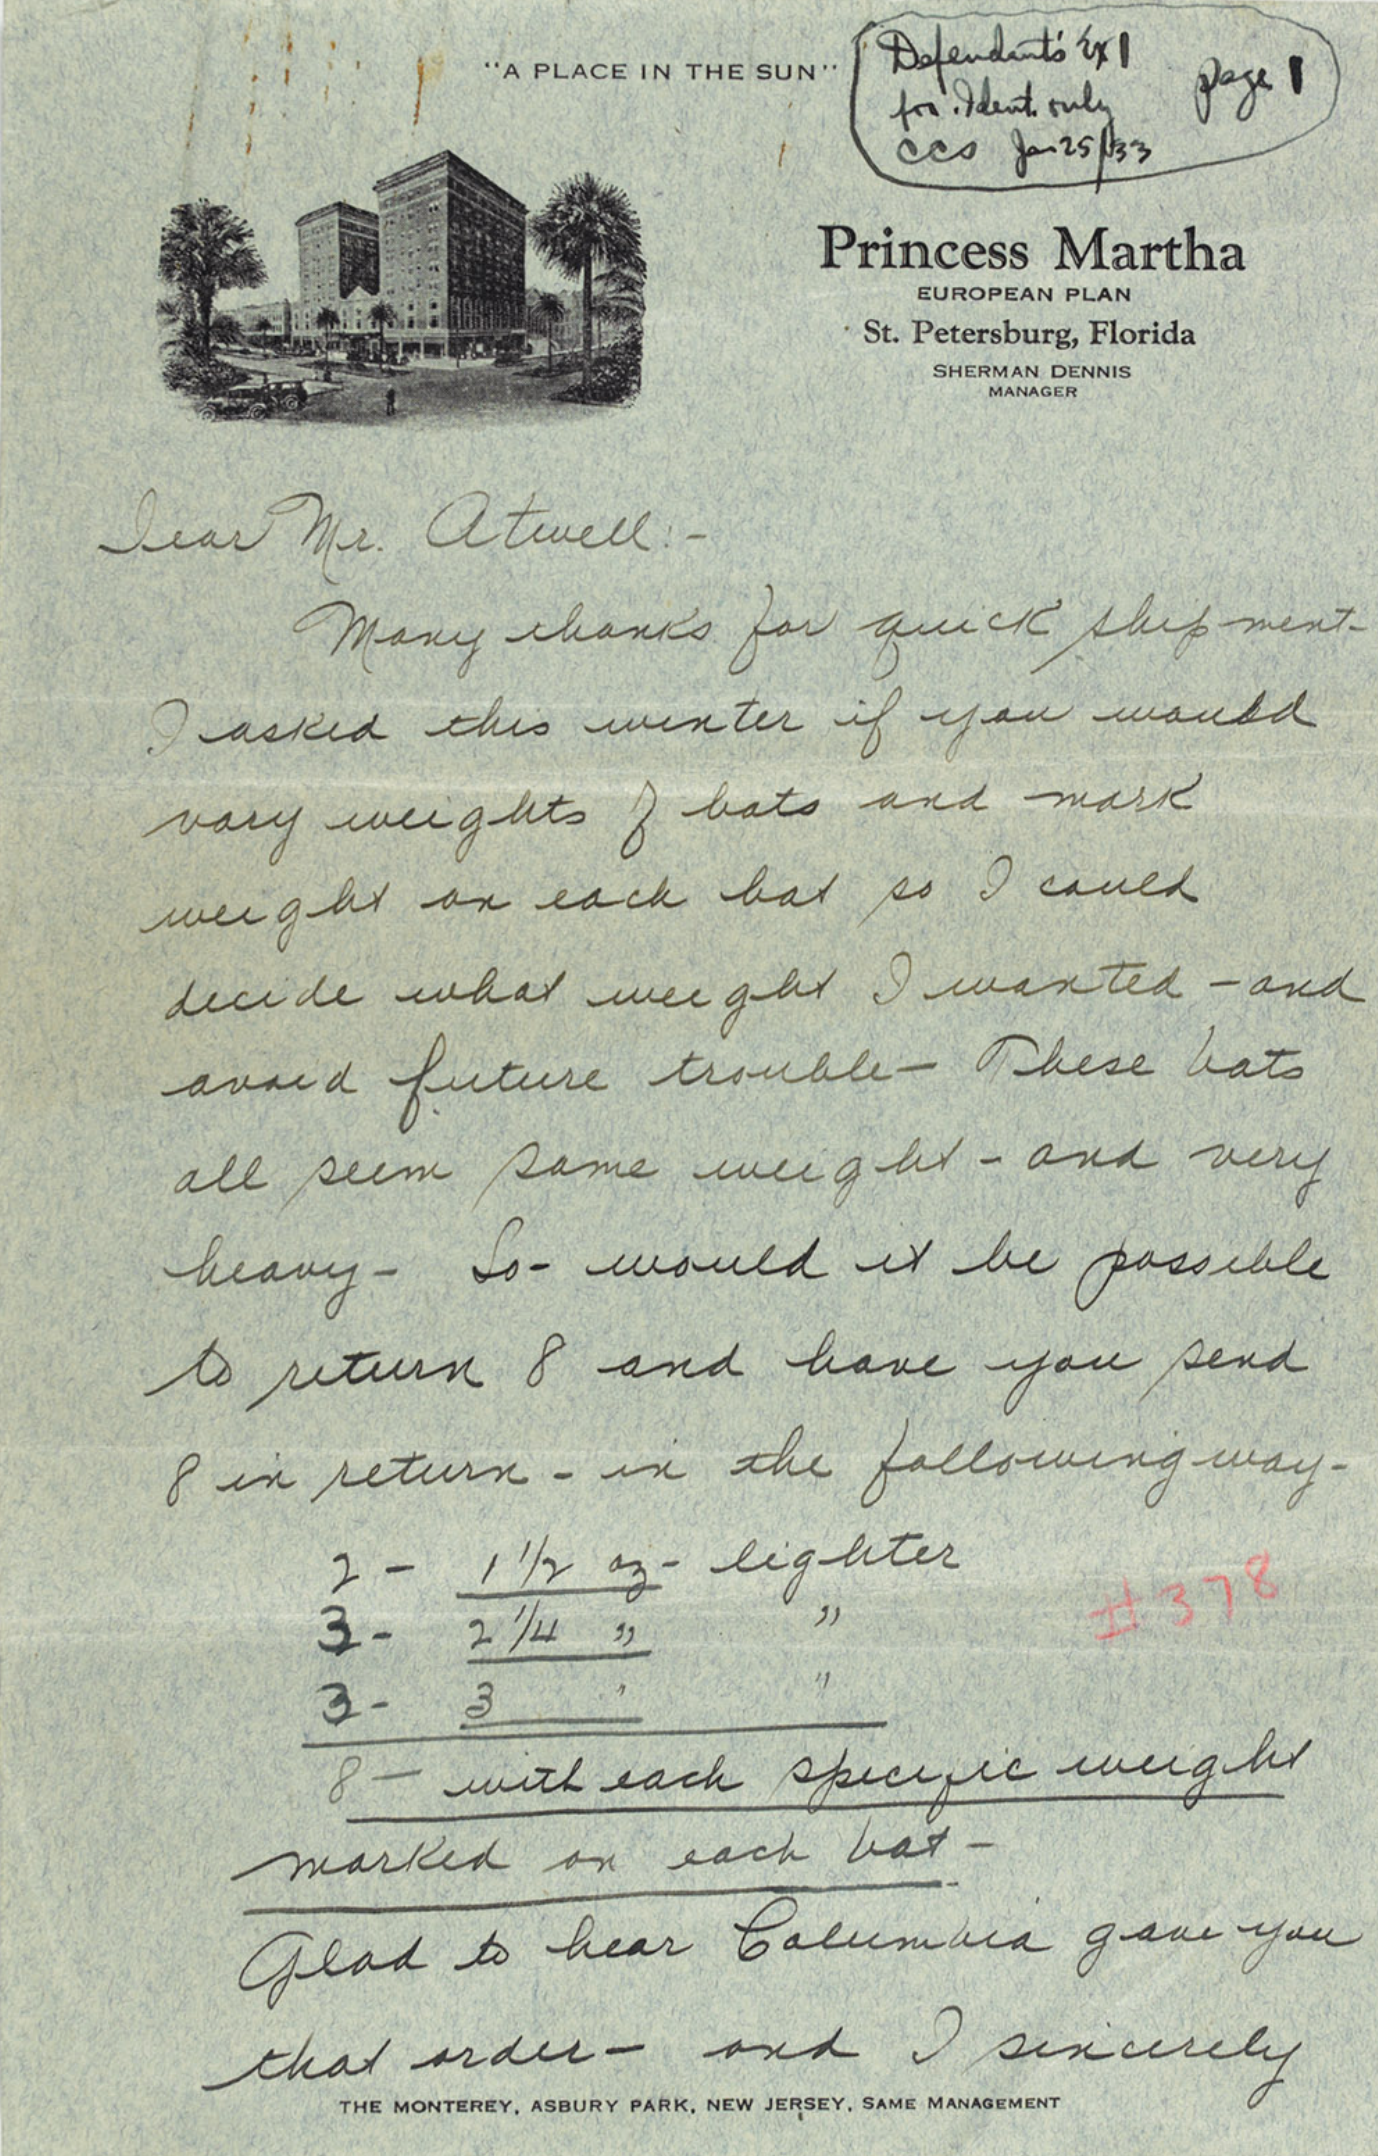 "A PLACE IN THE SUN"
Defendant's Ex 1
page 1
for Ident. only
CCS Jan 25/33
Princess Martha
EUROPEAN PLAN
St. Petersburg, Florida
SHERMAN DENNIS
MANAGER
Dear Mr. Atwell:-
Many thanks for quick shipment-
I asked this winter if you would
vary weights of bats and mark
weight on each bat so I could
decide what weight I wanted - and
avoid future trouble - These bats
all seem same weight - and very
heavy - So - would it be possible
to return 8 and have you send
8 in return - in the following way -
2 - 1 1/2 oz - lighter
3 - 2 1/4 " "
#378
3 - 3 " "
8 - with each specific weight
marked on each bat -
Glad to hear Columbia gave you
that order - and I sincerely
THE MONTEREY, ASBURY PARK, NEW JERSEY, SAME MANAGEMENT